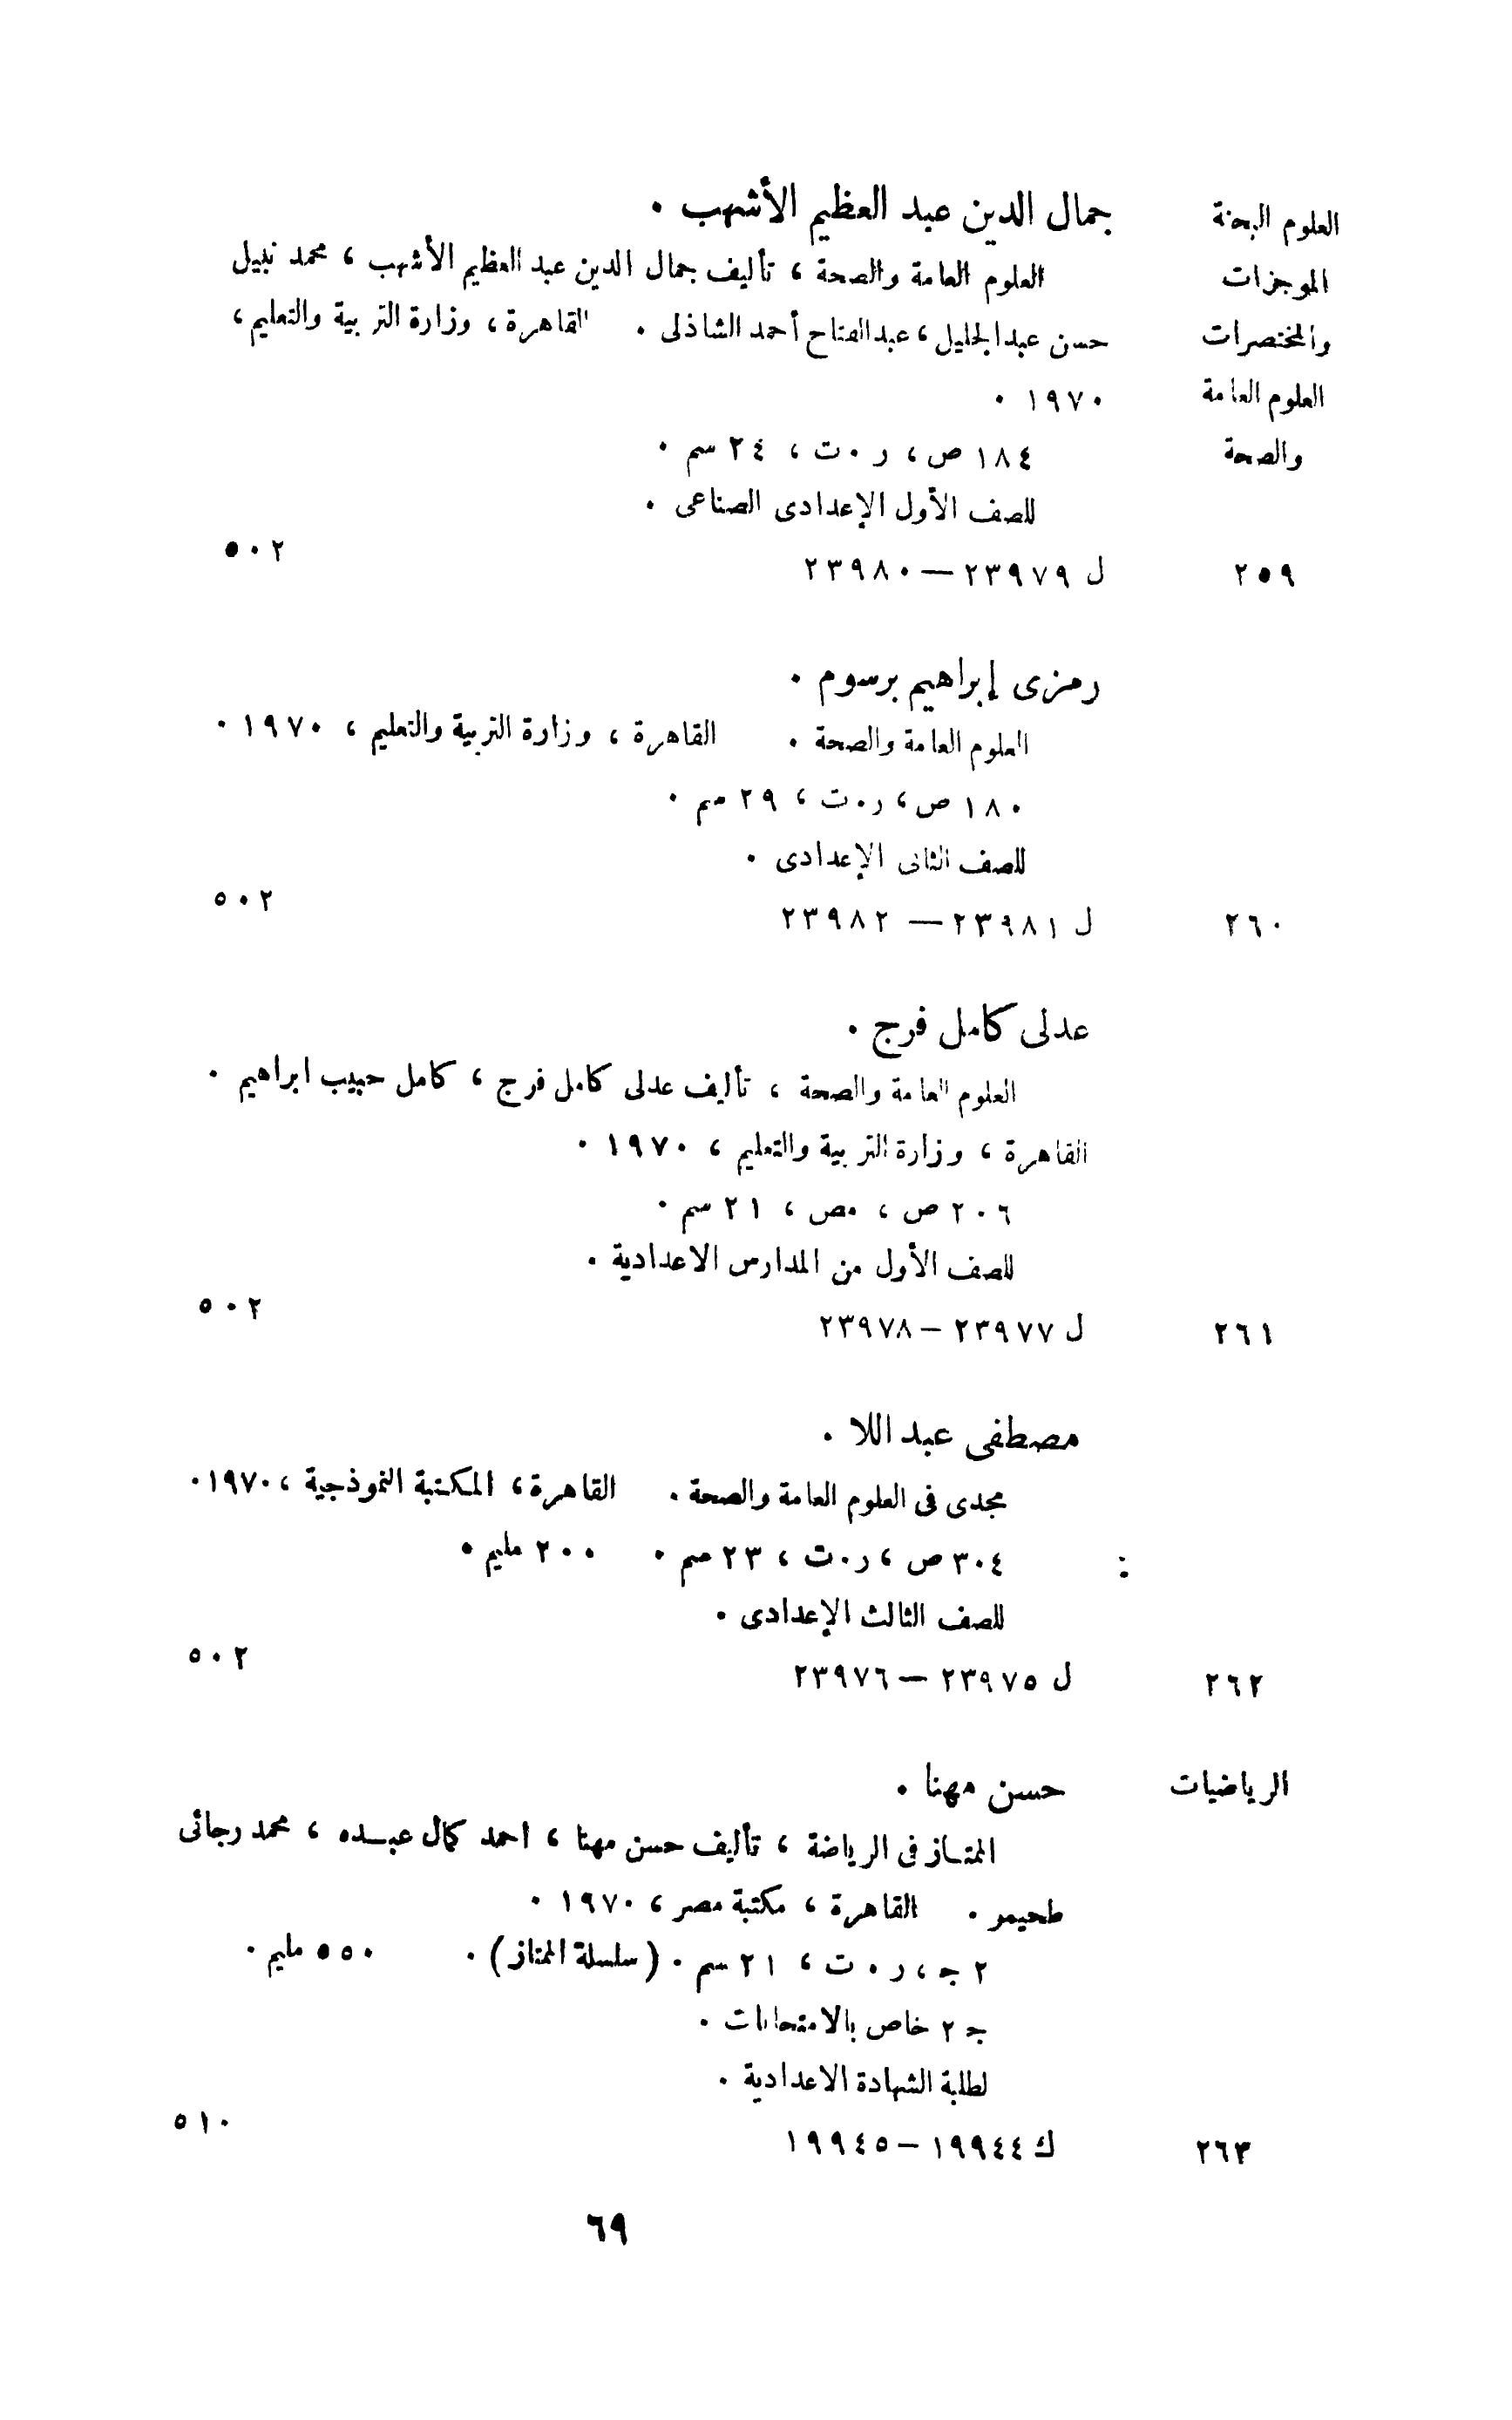 العلوم البحتة
الموجزات
والمختصرات
العلوم العامة
والصحة
جمال الدين عبد العظيم الأشهب .
العلوم العامة والصحة ، تأليف جمال الدين عبد العظيم الأشهب ، محمد نبيل
حسن عبد الجليل ، عبد الفتاح أحمد الشاذلى . القاهرة ، وزارة التربية والتعليم ،
١٩٧٠ .
١٨٤ ص ، ر . ت ، ٢٤ سم .
للصف الأول الإعدادى الصناعى .
٥٠٢
٢٥٩ ل ٢٣٩٧٩ — ٢٣٩٨٠
رمزى إبراهيم برسوم .
العلوم العامة والصحة . القاهرة ، وزارة التربية والتعليم ، ١٩٧٠ .
١٨٠ ص ، ر . ت ، ٢٩ سم .
للصف الثانى الإعدادى .
٥٠٢
٢٦٠ ل ٢٣٩٨١ — ٢٣٩٨٢
عدلى كامل فرج .
العلوم العامة والصحة ، تأليف عدلى كامل فرج ، كامل حبيب ابراهيم .
القاهرة ، وزارة التربية والتعليم ، ١٩٧٠ .
٢٠٦ ص ، مص ، ٢١ سم .
للصف الأول من المدارس الاعدادية .
٥٠٢
٢٦١ ل ٢٣٩٧٧ — ٢٣٩٧٨
مصطفى عبد اللا .
مجدى فى العلوم العامة والصحة . القاهرة ، المكتبة النموذجية ، ١٩٧٠ .
٣٠٤ ص ، ر . ت ، ٢٣ سم . ٢٠٠ مليم .
للصف الثالث الإعدادى .
٥٠٢
٢٦٢ ل ٢٣٩٧٥ — ٢٣٩٧٦
الرياضيات
حسن مهنا .
الممتاز فى الرياضة ، تأليف حسن مهنا ، احمد كمال عبده ، محمد رجائى
طحيمر . القاهرة ، مكتبة مصر ، ١٩٧٠ .
٢ ج ، ر . ت ، ٢١ سم . (سلسلة الممتاز) . ٥٥٠ مليم .
ج ٢ خاص بالامتحانات .
لطلبة الشهادة الاعدادية .
٥١٠
٢٦٣ ك ١٩٩٤٤ — ١٩٩٤٥
٦٩